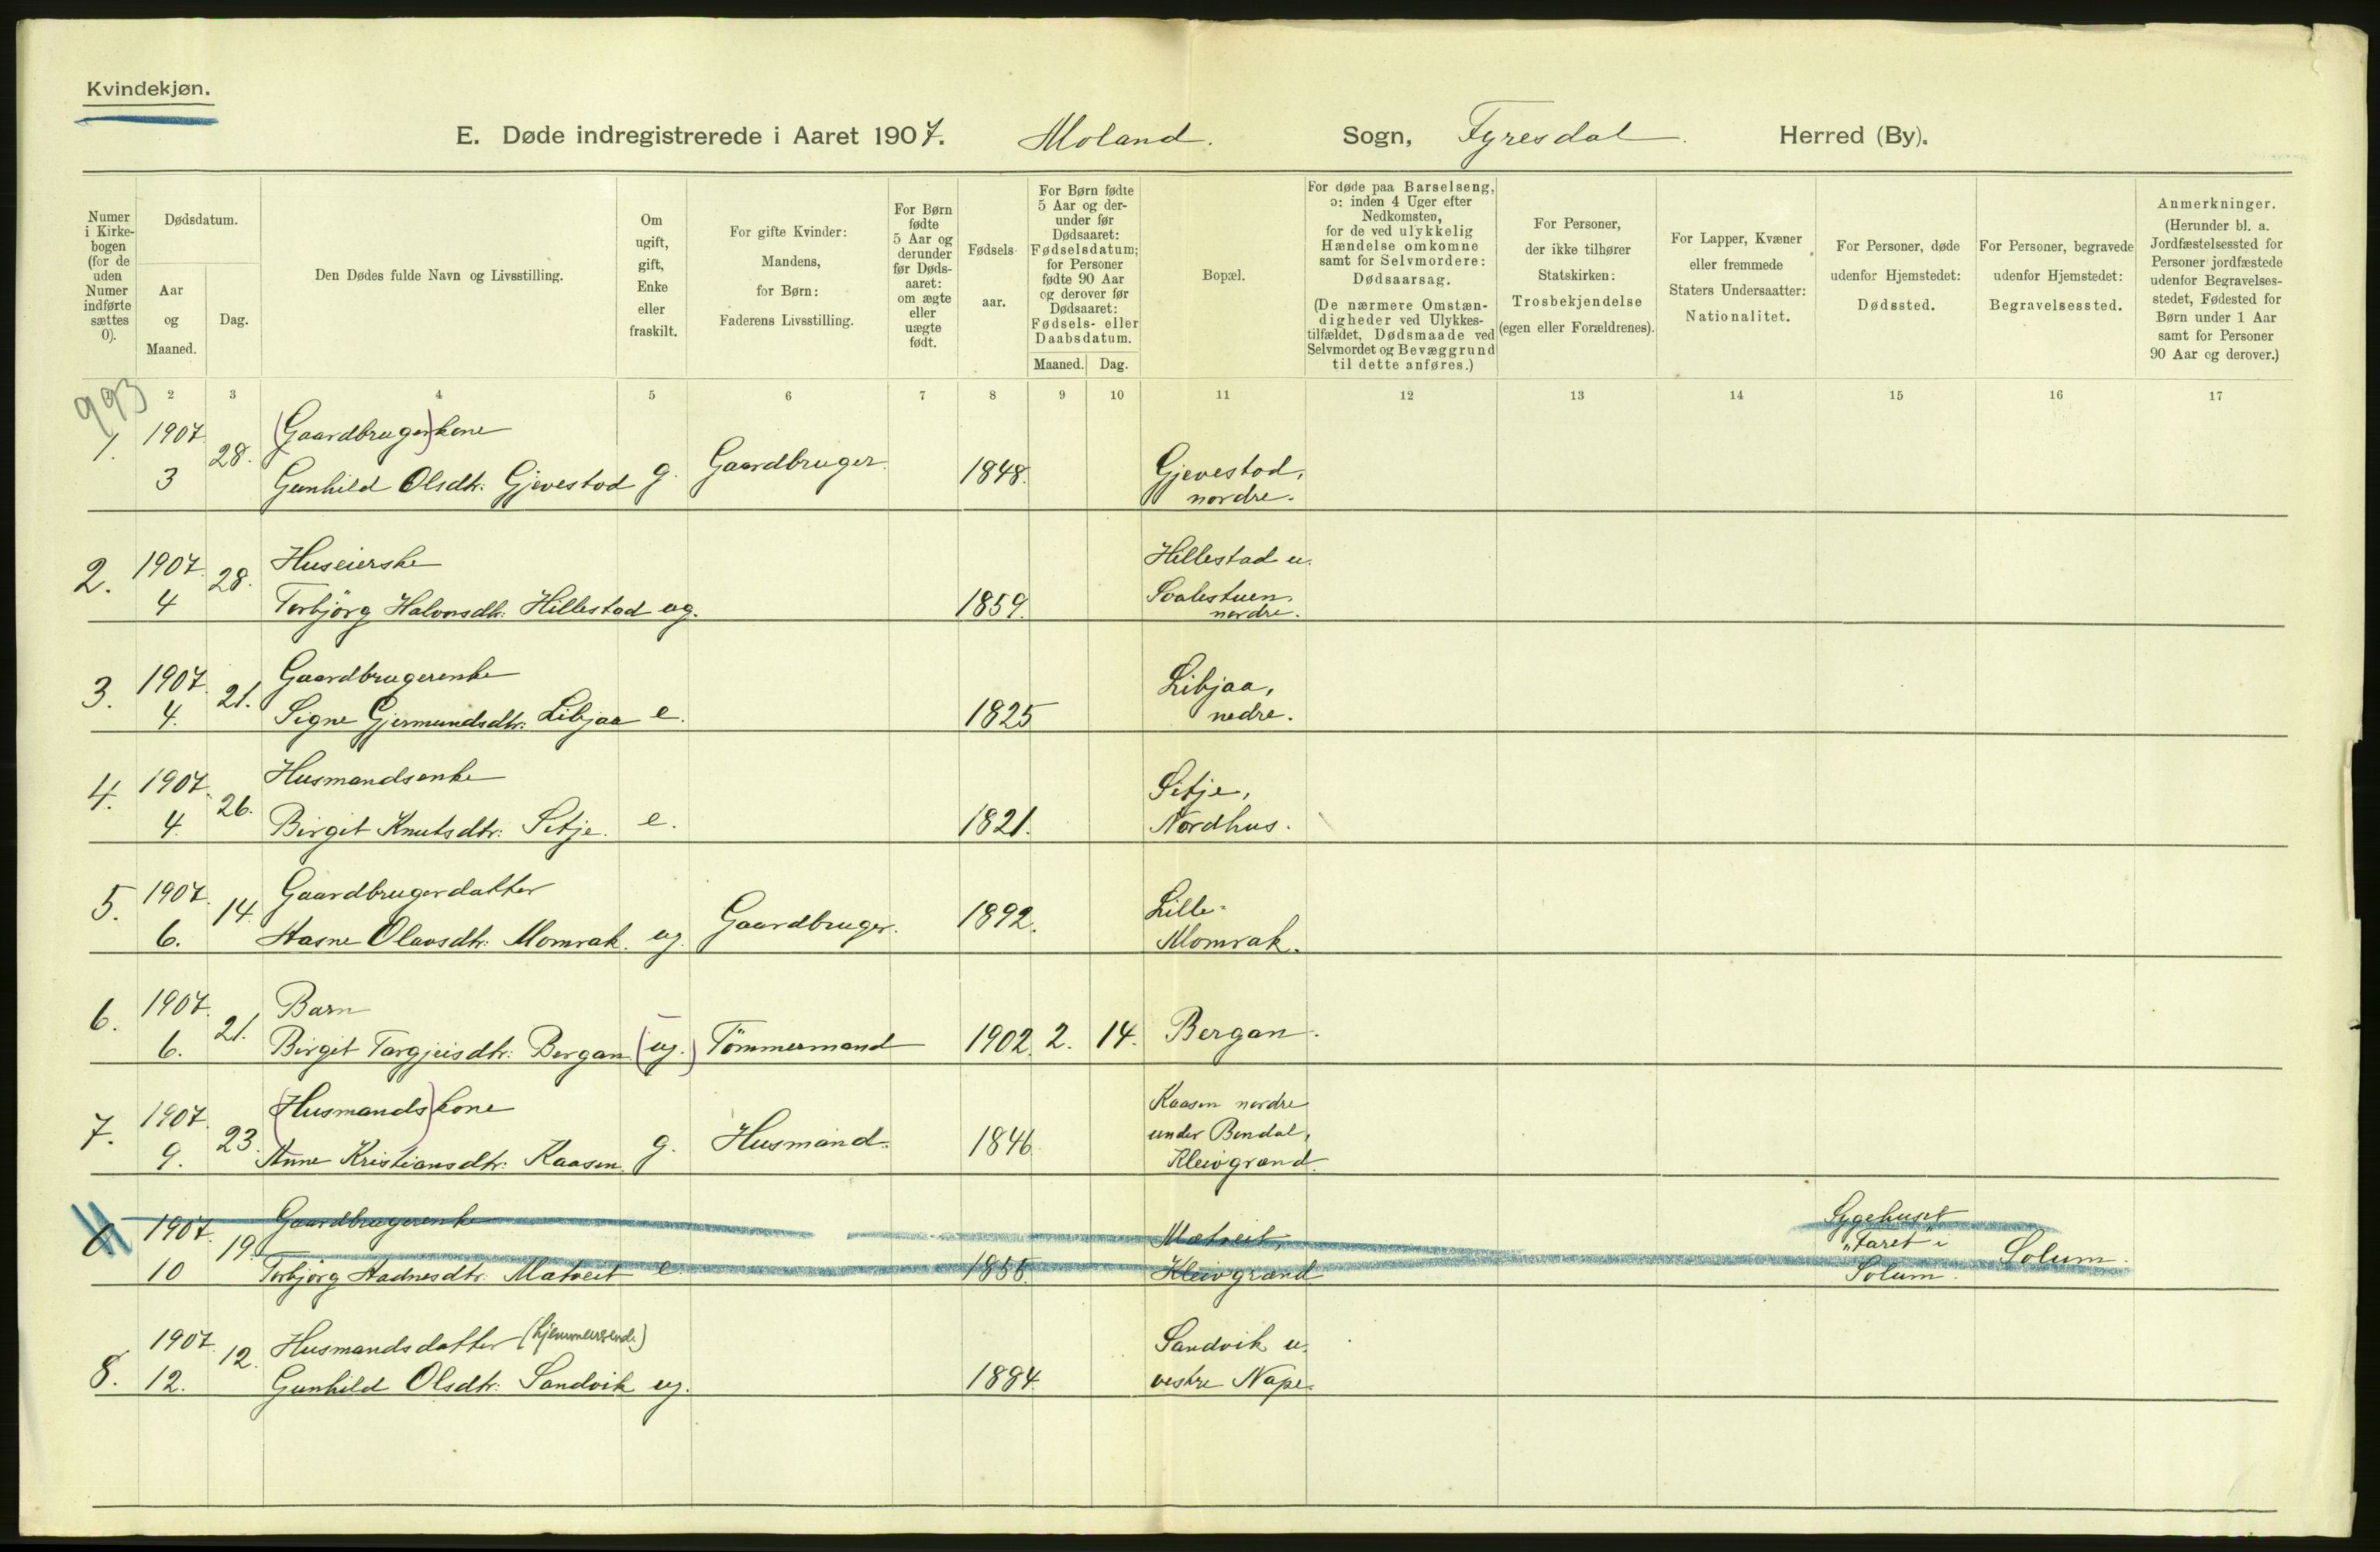 Kvindekjøn.
E. Døde indregistrerede i Aaret 1907. Moland. Sogn, Tyresdal. Herred (By).
Numer i Kirkebogen (for de uden Numer indførte sættes 0).
Dødsdatum.
Aar og Maaned.
Dag.
Den Dødes fulde Navn og Livsstilling.
Om ugift, gift, Enke eller fraskilt.
For gifte Kvinder: Mandens, for Børn: Faderens Livsstilling.
For Børn fødte 5 Aar og derunder før Dødsaaret: om ægte eller uægte født.
Fødselsaar.
For Børn fødte 5 Aar og derunder før Dødsaaret: Fødselsdatum; for Personer fødte 90 Aar og derover før Dødsaaret: Fødsels- eller Daabsdatum.
Maaned. Dag.
Bopæl.
For døde paa Barselseng, ɔ: inden 4 Uger efter Nedkomsten, for de ved ulykkelig Hændelse omkomne samt for Selvmordere: Dødsaarsag. (De nærmere Omstændigheder ved Ulykkestilfældet, Dødsmaade ved Selvmordet og Bevæggrund til dette anføres.)
For Personer, der ikke tilhører Statskirken: Trosbekjendelse (egen eller Forældrenes).
For Lapper, Kvæner eller fremmede Staters Undersaatter: Nationalitet.
For Personer, døde udenfor Hjemstedet: Dødssted.
For Personer, begravede udenfor Hjemstedet: Begravelsessted.
Anmerkninger. (Herunder bl. a. Jordfæstelsessted for Personer jordfæstede udenfor Begravelsesstedet, Fødested for Børn under 1 Aar samt for Personer 90 Aar og derover.)
993
2 3 4 5 6 7 8 9 10 11 12 13 14 15 16 17
1. 1907 3 28. (Gaardbruger)kone
Gunhild Olsdtr. Gjevestad g. Gaardbruger. 1848. Gjevestad, nordre.
2. 1907. 4 28. Huseierske
Torbjörg Halvorsdtr. Hillestad ug. 1859. Hillestad u. nordre.
3. 1907. 4. 21. Gaardbrugerenke
Signe Gjermundsdtr. Libjaa e. 1825 Libjaa, nedre.
4. 1907. 4. 26. Husmandsenke
Birgit Knutsdtr. Sitje. e. 1821. Sitje, Nordhus.
5. 1907. 6. 14. Gaardbrugerdatter
Aasne Olavsdtr. Momrak. ug. Gaardbruger. 1892. Lille-Momrak.
6. 1907. 6. 21. Barn
Birgit Targjeisdtr. Bergan (ug.) Tömmermand 1902. 2. 14. Bergan.
7. 1907. 9. 23. (Husmands)kone
Anne Kristiansdtr. Kaasen. g. Husmand. 1846 Kaasen nordre under Bendal, Kleivgrænd.
1907. 10 19. Gaardbrugerenke
Torbjörg Aadnesdtr. Matveit e. Matveit, Kleivgrænd Sygehuset „Faret" i Solum. Solum.
8. 1907. 12. 12. Husmandsdatter (hjemmeværende)
Gunhild Olsdtr. Sandvik ug. 1884. Sandvik u. vestre Nape.